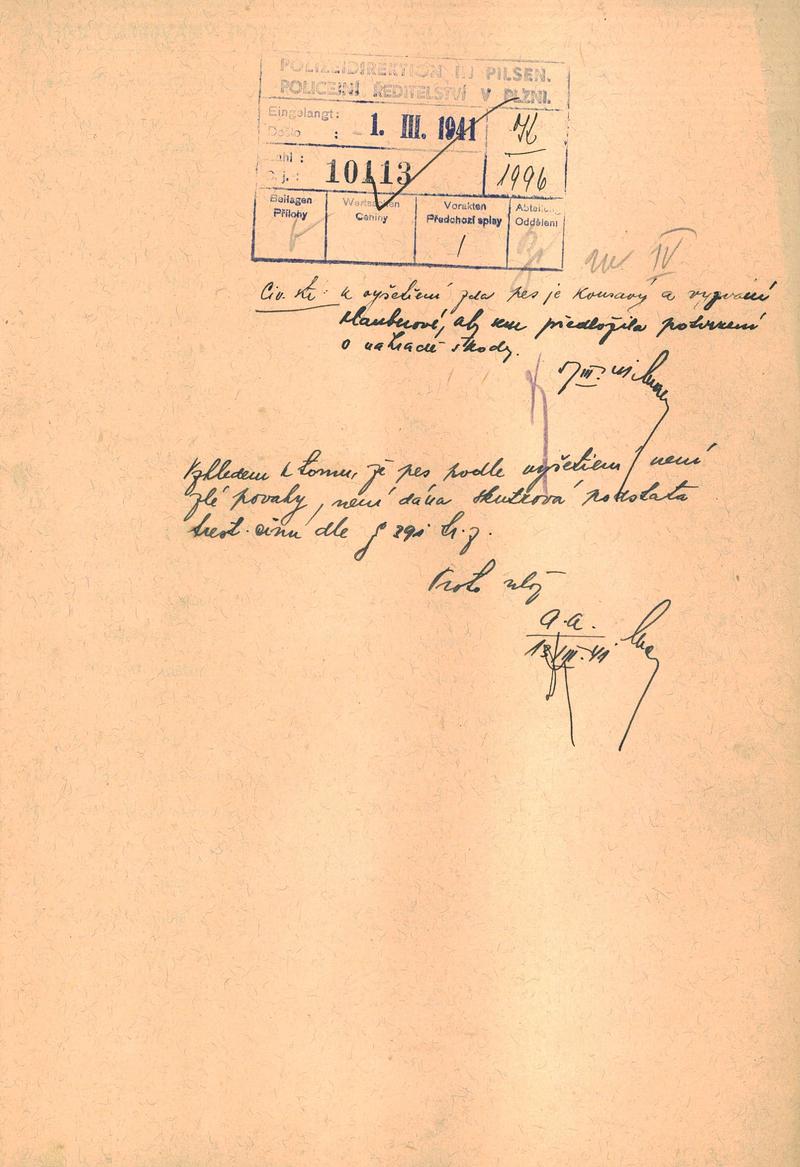 POLIZEIDIREKTION IN PILSEN.
POLICEJNÍ ŘEDITELSTVÍ V PLZNI.
Eingelangt:
Došlo :
1. III. 1941
IX
1996
Zahl :
Č. j. :
10113
Beilagen
Přílohy
Wertsachen
Ceniny
Vorakten
Předchozí spisy
1
Abteilung
Oddělení
IV
Civ. str. k vyšetření zda pes je kousavý a vyzvání
aby sem předložila potvrzení
o náhradě škody.
Vzhledem k tomu, že pes podle vyšetření není
zlé povahy, není dána skutková podstata
trest. činu dle § 391 tr. z.
Proto
a. a.
13/III. 41